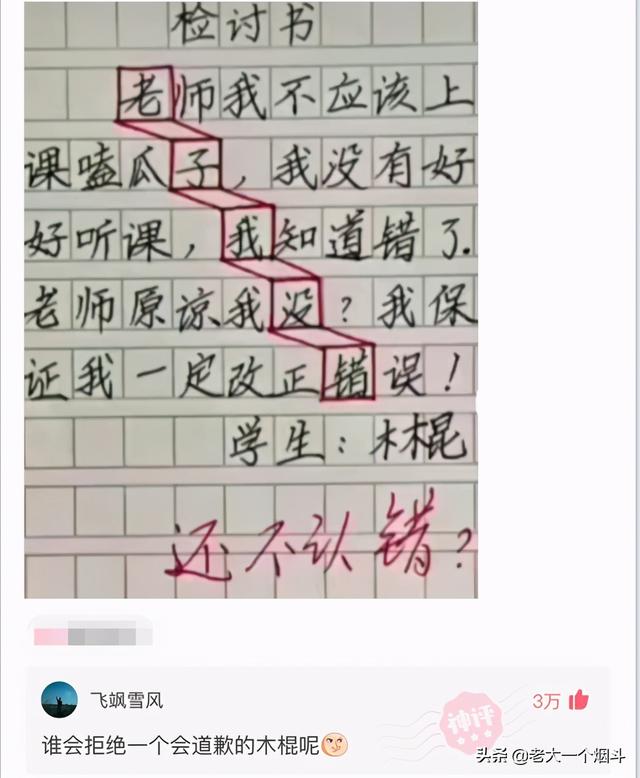 检讨书
老师我不应该上
课嗑瓜子，我没有好
好听课，我知道错了.
老师原谅我没？我保
证我一定改正错误！
学生：木棍
还不认错？
飞飒雪风
3万
神评
谁会拒绝一个会道歉的木棍呢
头条 @老大一个烟斗